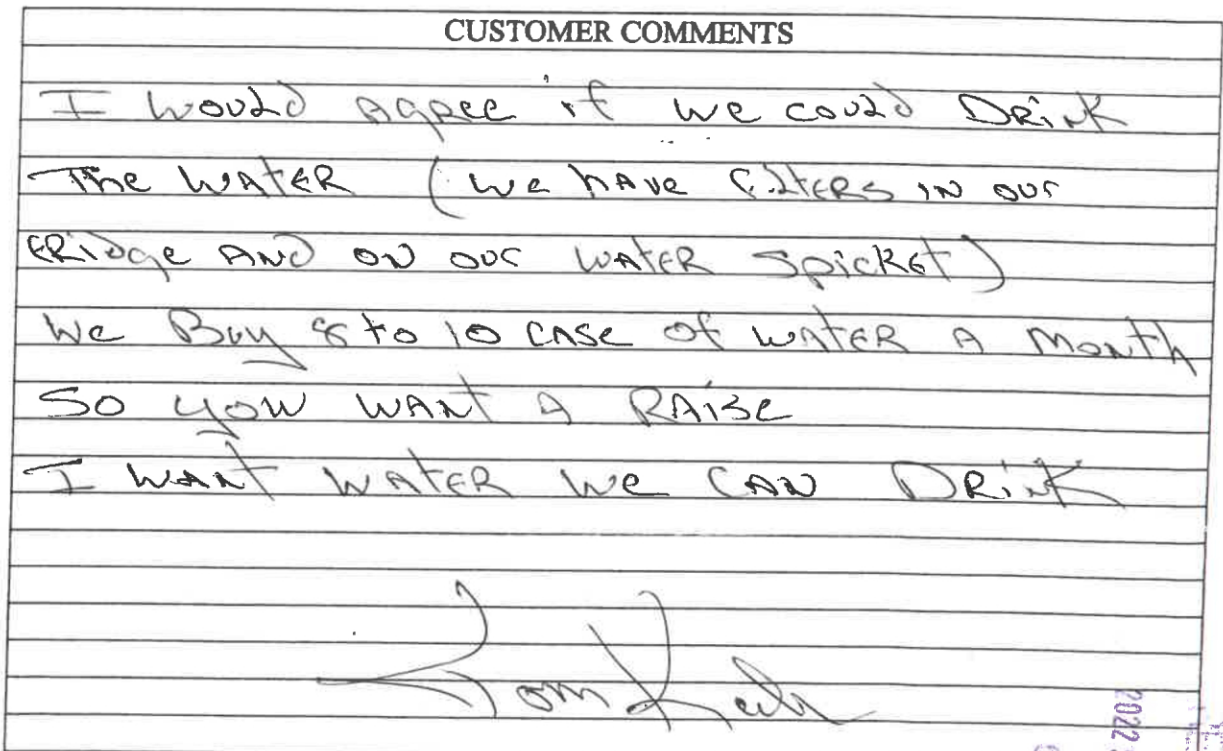 CUSTOMER COMMENTS
I would Agree if we could Drink
The WATER (we have Filters in our
FRidge AND on our WATER Spicket)
We Buy 8 to 10 CASE of WATER A Month
SO yow WANT A RAISE
I WANT WATER We CAN DRink
Tom
2022